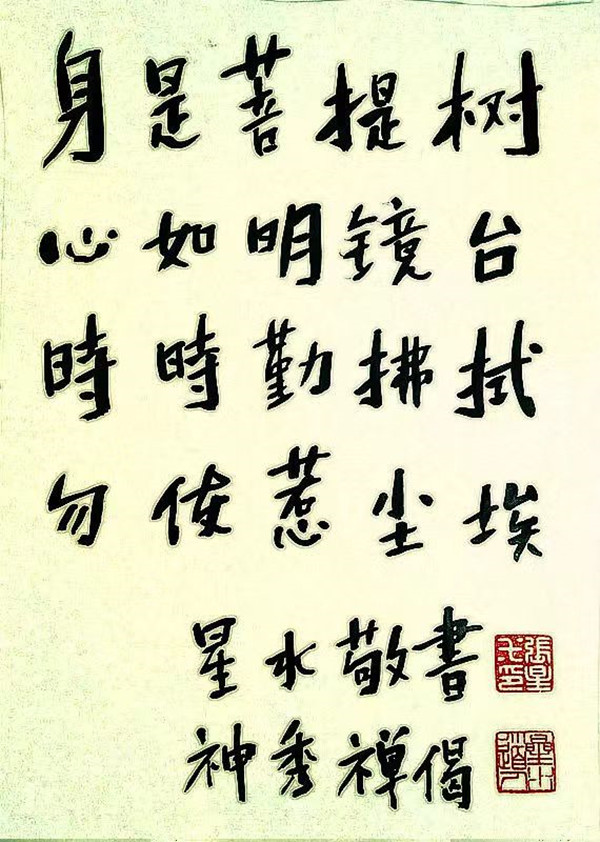 身是菩提树
心如明镜台
時時勤拂拭
勿使惹尘埃
星水敬書
神秀禅偈